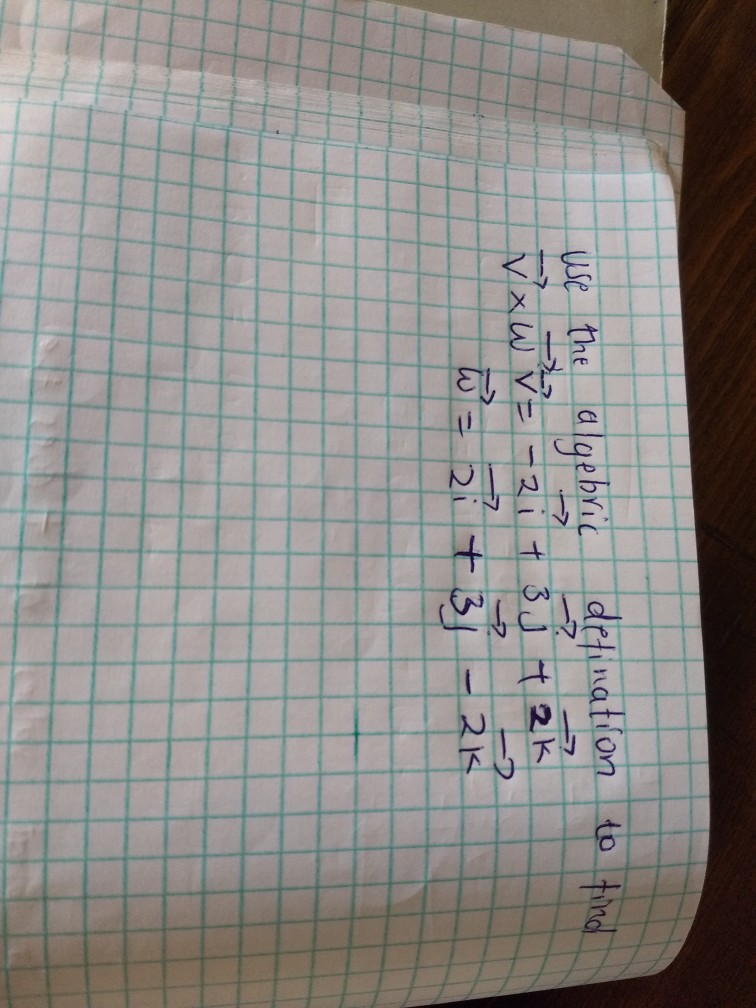 Use the algebric defination to find
v⃗ × w⃗ v⃗ = -2i⃗ + 3j⃗ + 2k⃗
w⃗ = 2i⃗ + 3j⃗ - 2k⃗